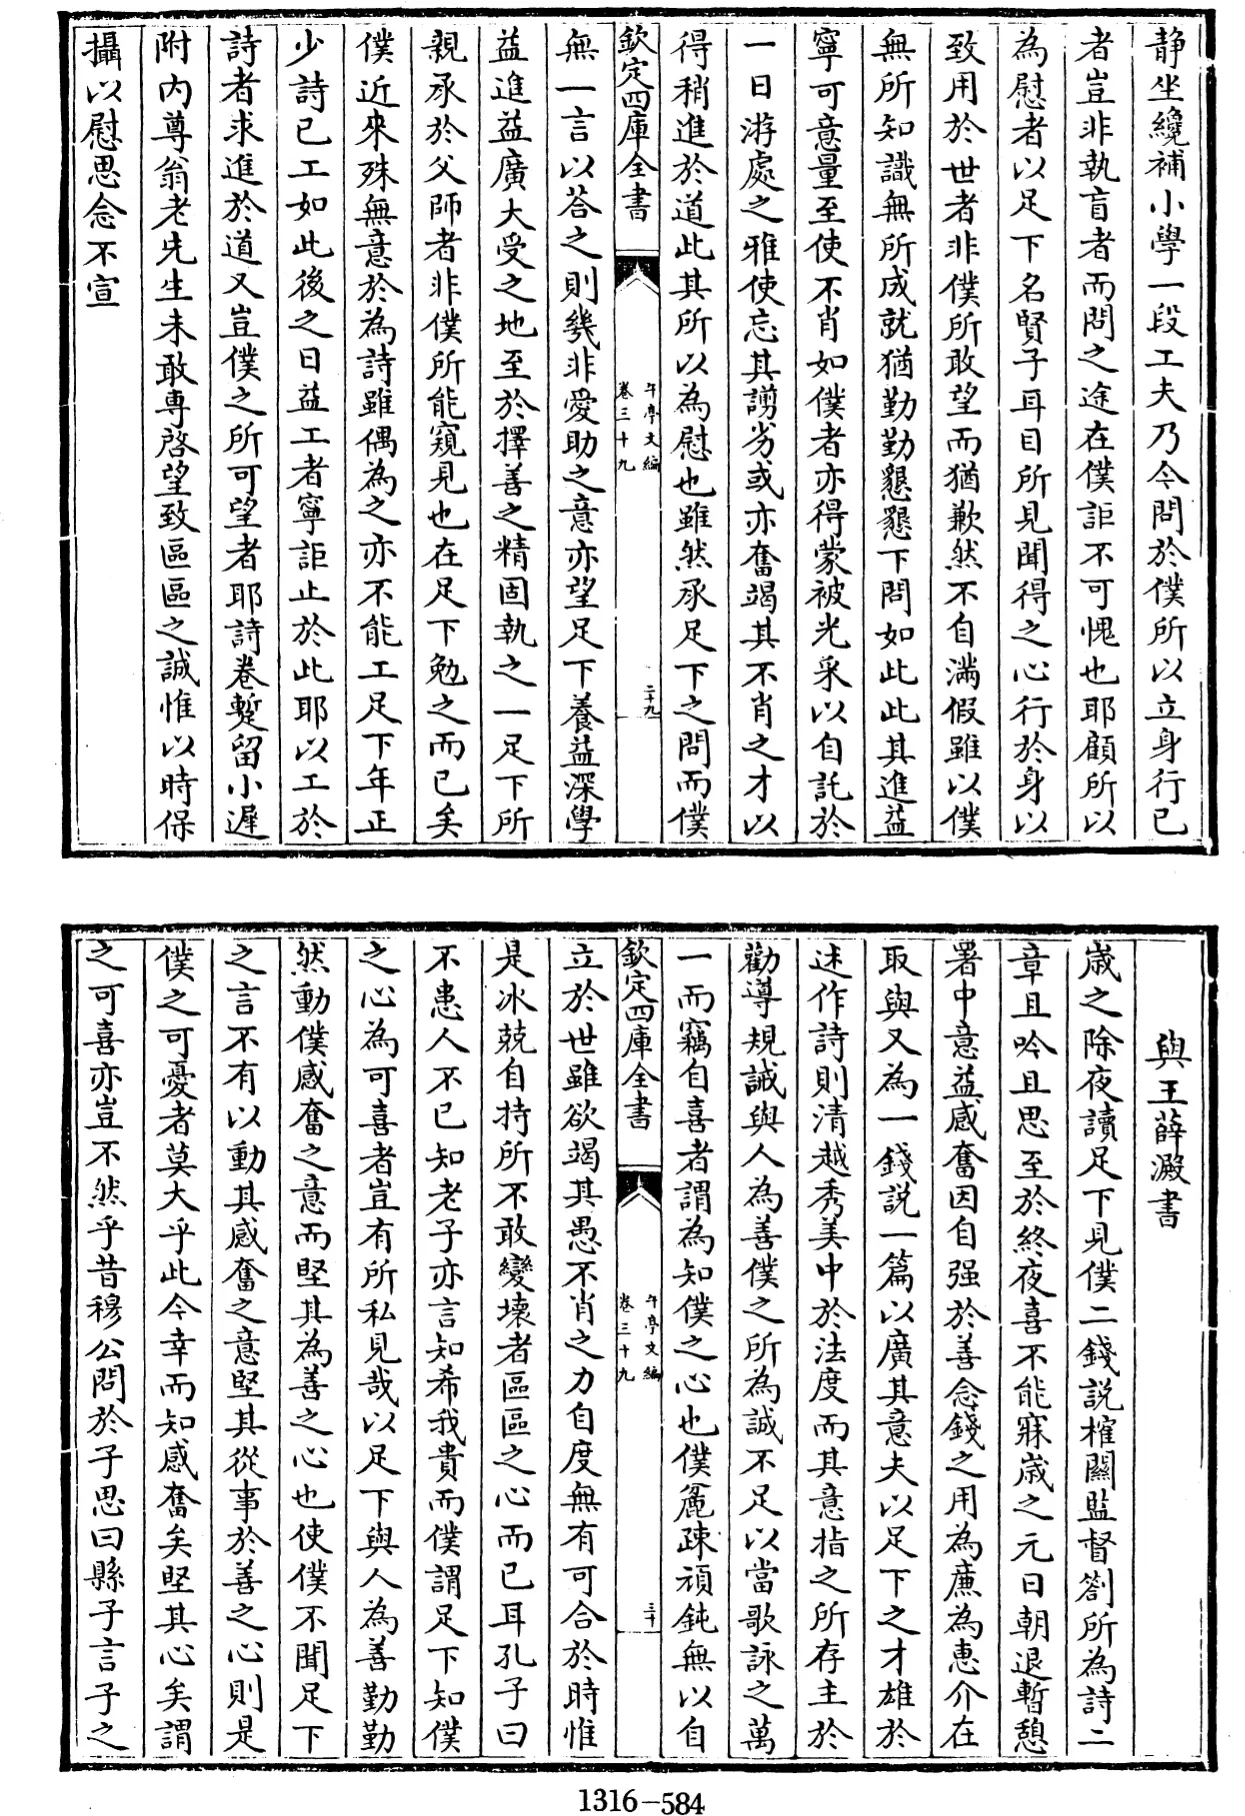 静坐纔補小學一段工夫乃今問於僕所以立身行已
者豈非執盲者而問之途在僕詎不可愧也耶顧所以
為慰者以足下名賢子耳目所見聞得之心行於身以
致用於世者非僕所敢望而猶歉然不自滿假雖以僕
無所知識無所成就猶勤勤懇懇下問如此此其進益
寧可意量至使不肖如僕者亦得蒙被光采以自託於
一日游處之雅使忘其謭劣或亦奮竭其不肖之才以
得稍進於道此其所以為慰也雖然承足下之問而僕
欽定四庫全書
午亭文編
卷三十九
二十九
無一言以荅之則幾非愛助之意亦望足下養益深學
益進益廣大受之地至於擇善之精固執之一足下所
親承於父師者非僕所能窺見也在足下勉之而已矣
僕近來殊無意於為詩雖偶為之亦不能工足下年正
少詩已工如此後之日益工者寧詎止於此耶以工於
詩者求進於道又豈僕之所可望者耶詩卷蹔留小遲
附内尊翁老先生未敢專啓望致區區之誠惟以時保
攝以慰思念不宣
與王薛澱書
歲之除夜讀足下見僕二錢説榷關監督劄所為詩二
章且吟且思至於終夜喜不能寐歲之元日朝退暫憩
署中意益感奮因自强於善念錢之用為廉為惠介在
取與又為一錢説一篇以廣其意夫以足下之才雄於
述作詩則清越秀美中於法度而其意指之所存主於
勸導規誡與人為善僕之所為誠不足以當歌詠之萬
一而竊自喜者謂為知僕之心也僕麄疎頑鈍無以自
欽定四庫全書
午亭文編
卷三十九
三十
立於世雖欲竭其愚不肖之力自度無有可合於時惟
是冰兢自持所不敢變壞者區區之心而已耳孔子曰
不患人不已知老子亦言知希我貴而僕謂足下知僕
之心為可喜者豈有所私見哉以足下與人為善勤勤
然動僕感奮之意而堅其為善之心也使僕不聞足下
之言不有以動其感奮之意堅其從事於善之心則是
僕之可憂者莫大乎此今幸而知感奮矣堅其心矣謂
之可喜亦豈不然乎昔穆公問於子思曰縣子言子之
1316-584